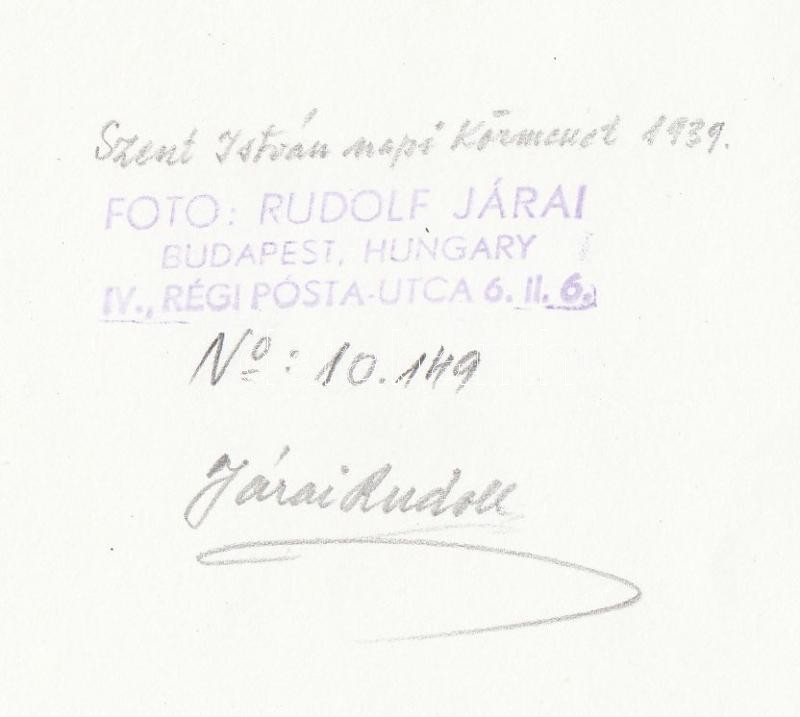 Szent István napi Körmenet 1939.
FOTO: RUDOLF JÁRAI
BUDAPEST, HUNGARY
IV., RÉGI PÓSTA-UTCA 6. II. 6.
Nº: 10.149
Járai Rudolf